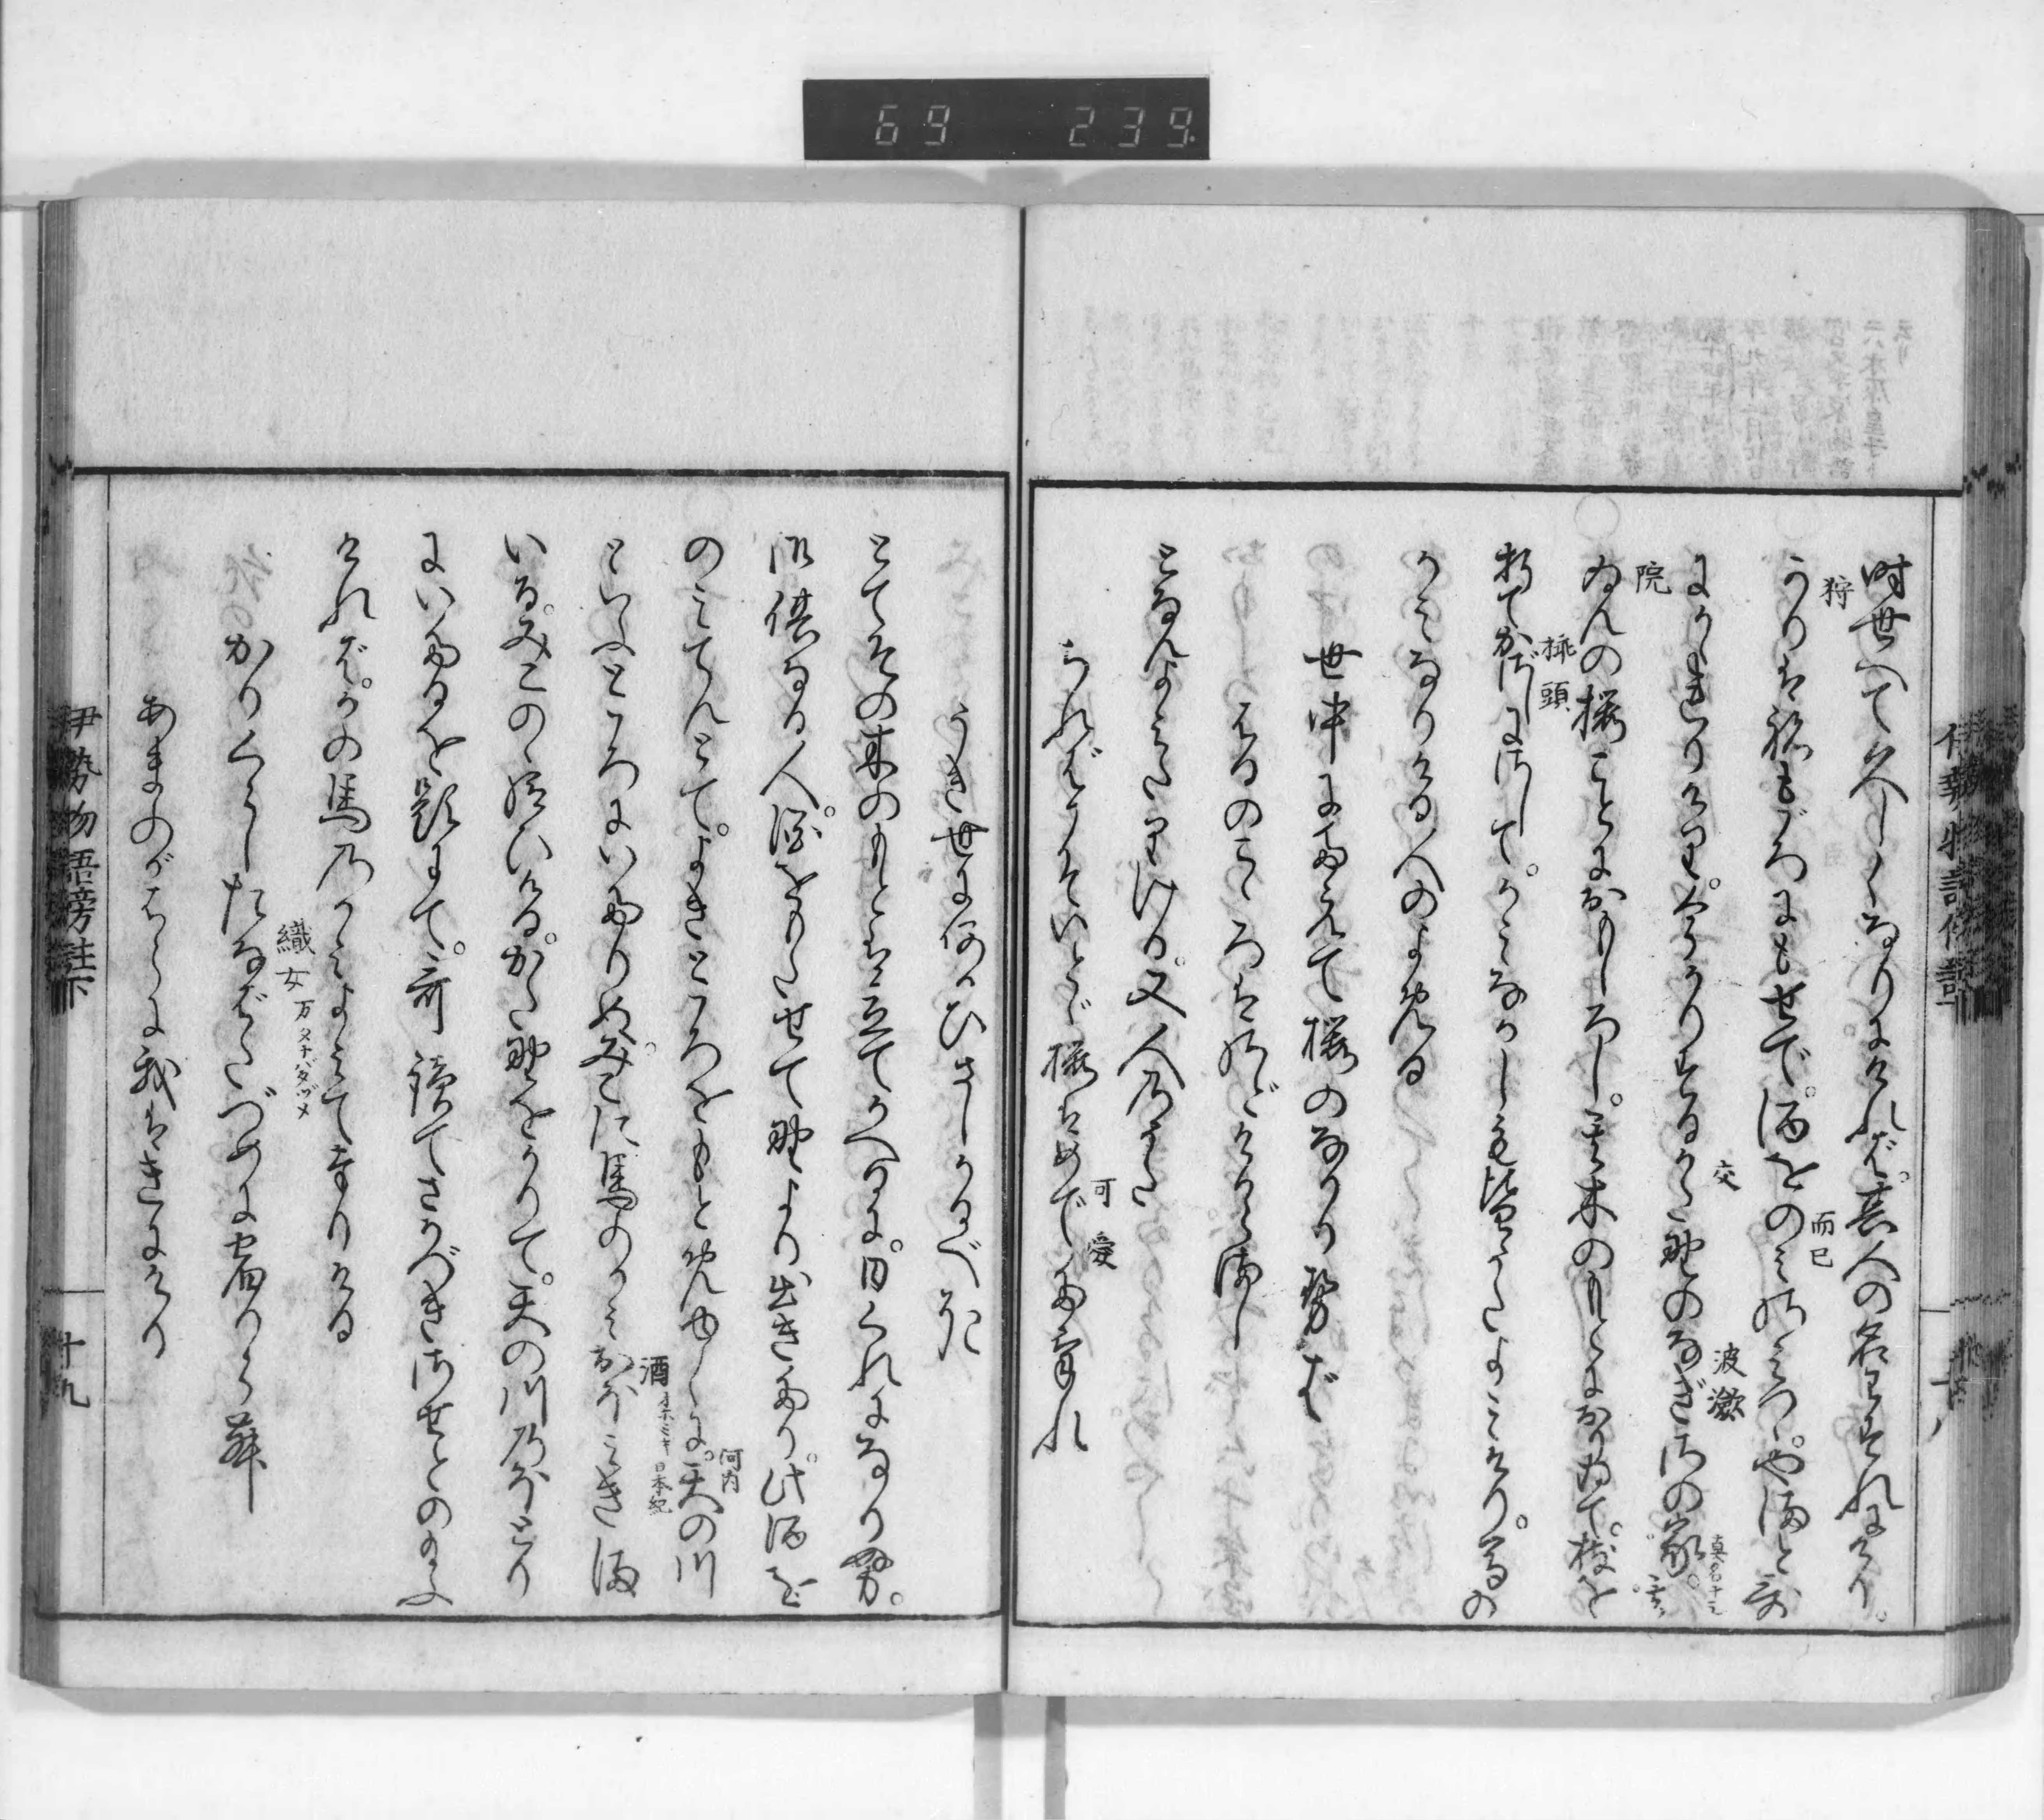 69 239
時世へて久しくなりにければ。其人の名わすれにけり。
狩
かりはねもごろにもせで。酒をのみのみつゝ。やまと哥
而已
にかゝれりけり。今かりするかた野のなぎさの家。
交
波瀲
院
ゐんの桜ことにおもしろし。其木のもとにおりゐて。枝を
折てかざしにさして。かみなかしも皆うたよみけり。
挿頭
かみなりける人のよめる
世中にたえて桜のなかりせば
はるのこゝろはのどけからまし
となんよみたりける。又人のうた
ちればこそいとゞ桜はめでたけれ
可愛
うき世に何かひさしかるべき
とてその木のもとは立てかへるに。日くれになりぬ。
御供なる人。酒をもたせて野より出きたり。此酒を
のみてんとて。よきところをもとめゆくに。天の川
河内
といふところにいたりぬ。みこに馬のかみおほみきま
酒 オホミキ 日本紀
いる。みこのゝ給ひける。かた野をかりて。天の川のほとり
にいたるを題にて。哥讀てさかづきはさせとのたまふ
ければ。かの馬のかみよみて奉りける
かりくらしたなばたづめに宿からん
織女 万タナバタツメ
あまのがはらに我はきにけり
伊勢物語傍註下
十九